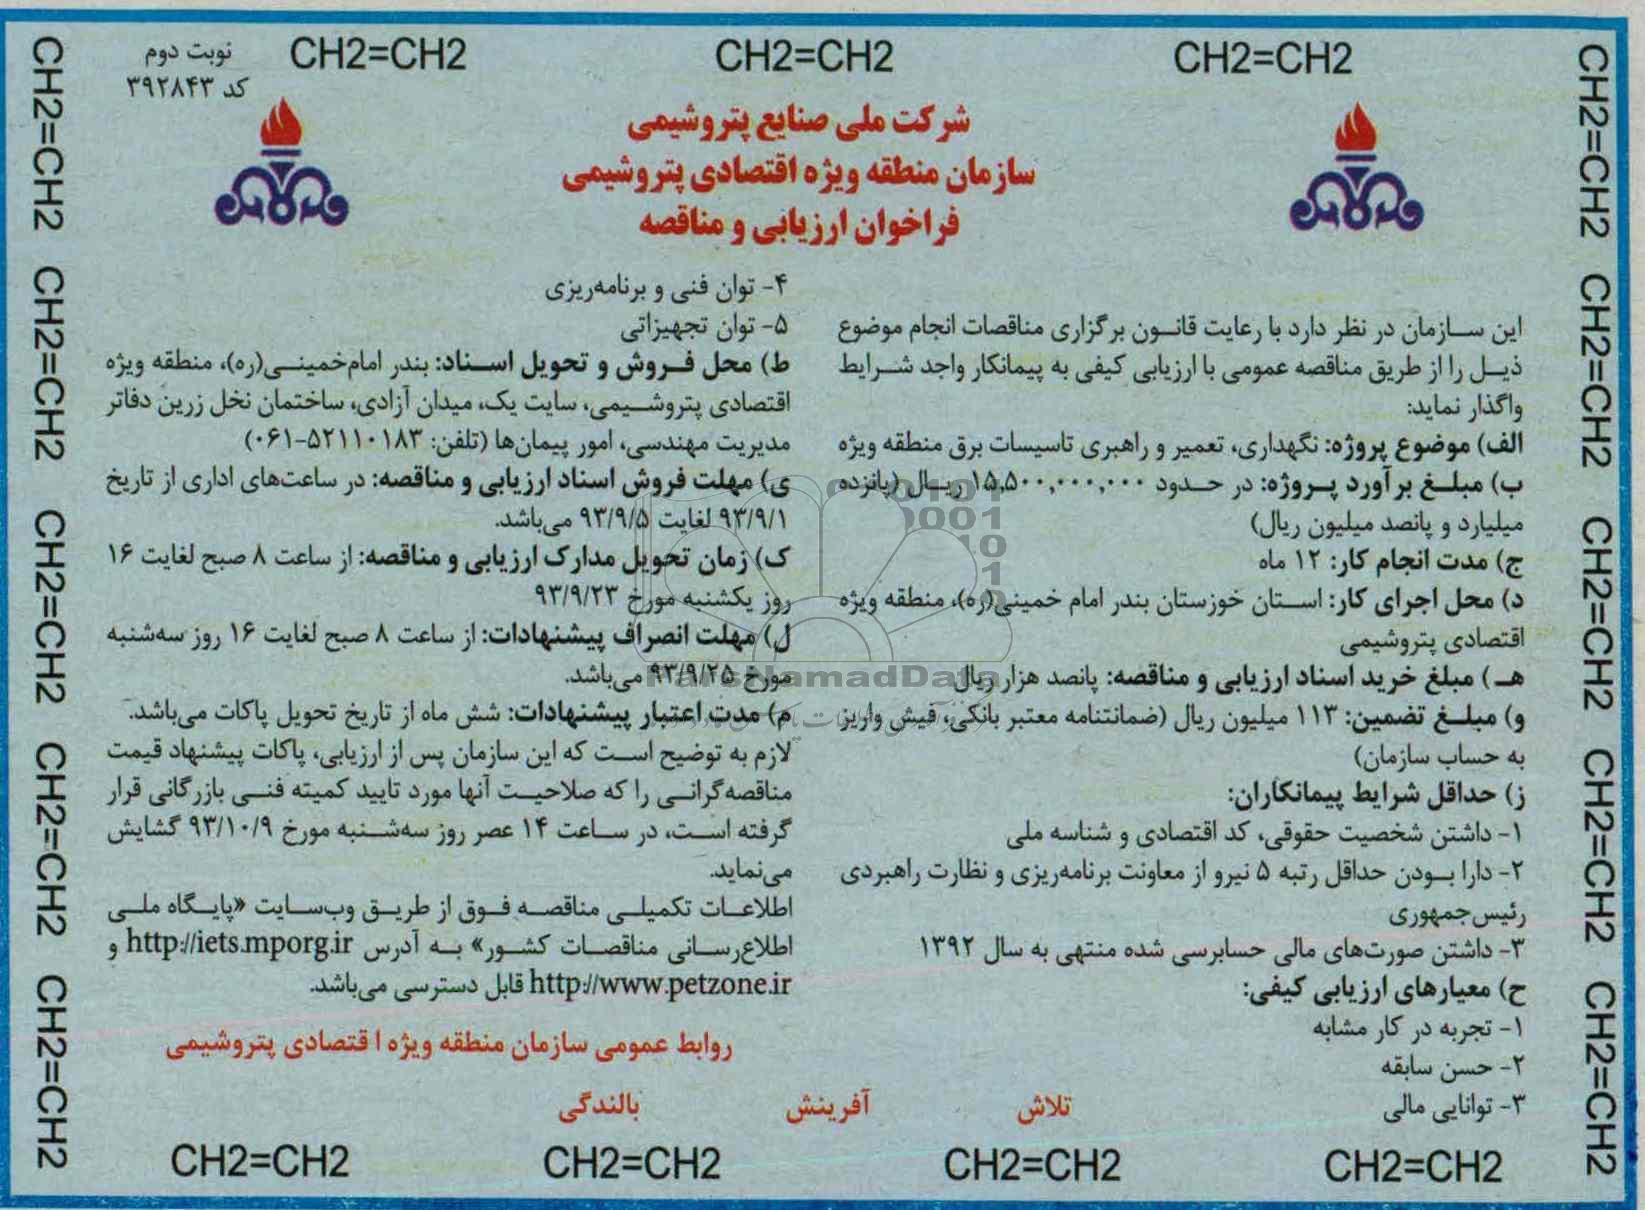 CH2=CH2 CH2=CH2 CH2=CH2
نوبت دوم
کد ۳۹۲۸۴۳
شرکت ملی صنایع پتروشیمی
سازمان منطقه ویژه اقتصادی پتروشیمی
فراخوان ارزیابی و مناقصه
این سازمان در نظر دارد با رعایت قانون برگزاری مناقصات انجام موضوع
ذیل را از طریق مناقصه عمومی با ارزیابی کیفی به پیمانکار واجد شرایط
واگذار نماید:
الف) موضوع پروژه: نگهداری، تعمیر و راهبری تاسیسات برق منطقه ویژه
ب) مبلغ برآورد پروژه: در حدود ۱۵،۵۰۰،۰۰۰،۰۰۰ ریال (پانزده
میلیارد و پانصد میلیون ریال)
ج) مدت انجام کار: ۱۲ ماه
د) محل اجرای کار: استان خوزستان بندر امام خمینی(ره)، منطقه ویژه
اقتصادی پتروشیمی
هـ) مبلغ خرید اسناد ارزیابی و مناقصه: پانصد هزار ریال
و) مبلغ تضمین: ۱۱۳ میلیون ریال (ضمانتنامه معتبر بانکی، فیش واریز
به حساب سازمان)
ز) حداقل شرایط پیمانکاران:
۱- داشتن شخصیت حقوقی، کد اقتصادی و شناسه ملی
۲- دارا بودن حداقل رتبه ۵ نیرو از معاونت برنامه‌ریزی و نظارت راهبردی
رئیس‌جمهوری
۳- داشتن صورت‌های مالی حسابرسی شده منتهی به سال ۱۳۹۲
ح) معیارهای ارزیابی کیفی:
۱- تجربه در کار مشابه
۲- حسن سابقه
۳- توانایی مالی
۴- توان فنی و برنامه‌ریزی
۵- توان تجهیزاتی
ط) محل فروش و تحویل اسناد: بندر امام‌خمینی(ره)، منطقه ویژه
اقتصادی پتروشیمی، سایت یک، میدان آزادی، ساختمان نخل زرین دفاتر
مدیریت مهندسی، امور پیمان‌ها (تلفن: ۵۲۱۱۰۱۸۳-۰۶۱)
ی) مهلت فروش اسناد ارزیابی و مناقصه: در ساعت‌های اداری از تاریخ
۹۳/۹/۱ لغایت ۹۳/۹/۵ می‌باشد.
ک) زمان تحویل مدارک ارزیابی و مناقصه: از ساعت ۸ صبح لغایت ۱۶
روز یکشنبه مورخ ۹۳/۹/۲۳
ل) مهلت انصراف پیشنهادات: از ساعت ۸ صبح لغایت ۱۶ روز سه‌شنبه
مورخ ۹۳/۹/۲۵ می‌باشد.
م) مدت اعتبار پیشنهادات: شش ماه از تاریخ تحویل پاکات می‌باشد.
لازم به توضیح است که این سازمان پس از ارزیابی، پاکات پیشنهاد قیمت
مناقصه‌گرانی را که صلاحیت آنها مورد تایید کمیته فنی بازرگانی قرار
گرفته است، در ساعت ۱۴ عصر روز سه‌شنبه مورخ ۹۳/۱۰/۹ گشایش
می‌نماید.
اطلاعات تکمیلی مناقصه فوق از طریق وب‌سایت «پایگاه ملی
اطلاع‌رسانی مناقصات کشور» به آدرس http://iets.mporg.ir و
http://www.petzone.ir قابل دسترسی می‌باشد.
روابط عمومی سازمان منطقه ویژه اقتصادی پتروشیمی
تلاش آفرینش بالندگی
CH2=CH2 CH2=CH2 CH2=CH2 CH2=CH2
CH2=CH2 CH2=CH2 CH2=CH2 CH2=CH2 CH2=CH2
CH2=CH2 CH2=CH2 CH2=CH2 CH2=CH2 CH2=CH2
ParsNamadData